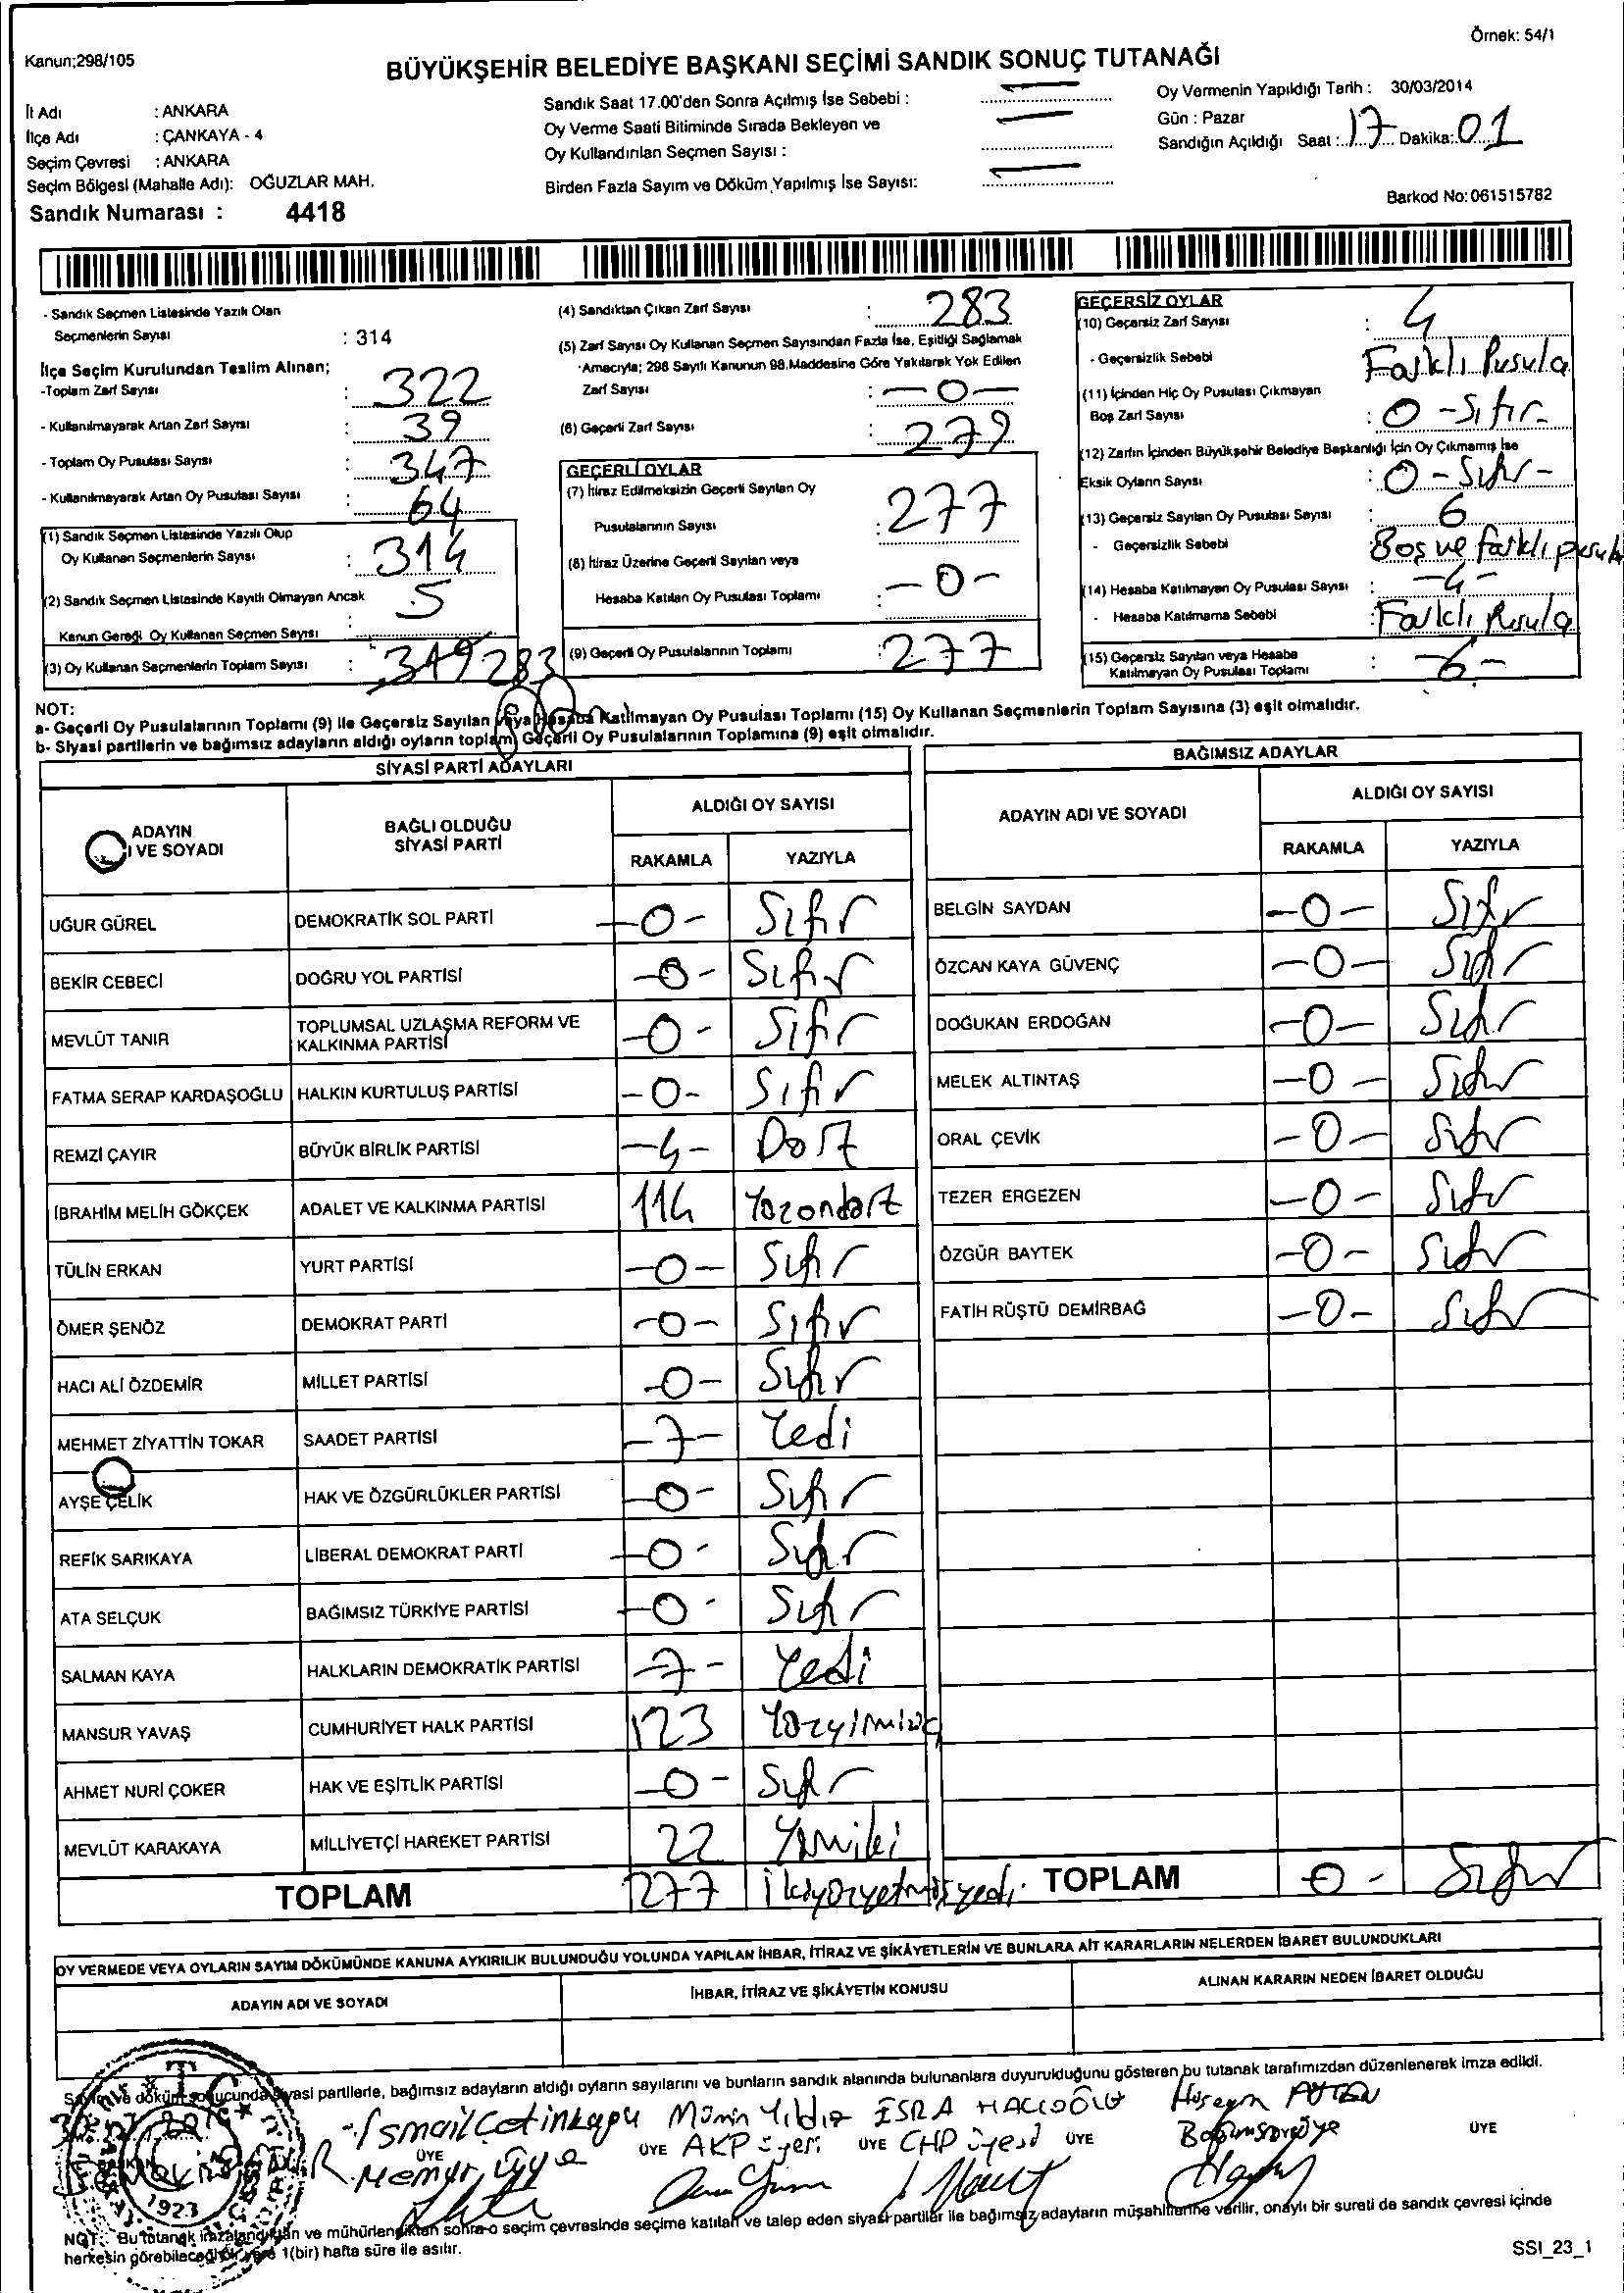 Örnek: 54/1
Kanun;298/105
BÜYÜKŞEHİR BELEDİYE BAŞKANI SEÇİMİ SANDIK SONUÇ TUTANAĞI
İl Adı : ANKARA
İlçe Adı : ÇANKAYA - 4
Seçim Çevresi : ANKARA
Seçim Bölgesi (Mahalle Adı): OĞUZLAR MAH.
Sandık Numarası : 4418
Sandık Saat 17.00'den Sonra Açılmış İse Sebebi :
Oy Verme Saati Bitiminde Sırada Bekleyen ve
Oy Kullandırılan Seçmen Sayısı :
Birden Fazla Sayım ve Döküm Yapılmış İse Sayısı:
Oy Vermenin Yapıldığı Tarih : 30/03/2014
Gün : Pazar
Sandığın Açıldığı Saat : 17 Dakika: 01
Barkod No: 061515782
- Sandık Seçmen Listesinde Yazılı Olan
Seçmenlerin Sayısı : 314
İlçe Seçim Kurulundan Teslim Alınan;
-Toplam Zarf Sayısı : 322
- Kullanılmayarak Artan Zarf Sayısı : 39
- Toplam Oy Pusulası Sayısı : 347
- Kullanılmayarak Artan Oy Pusulası Sayısı : 64
(1) Sandık Seçmen Listesinde Yazılı Olup
Oy Kullanan Seçmenlerin Sayısı : 314
(2) Sandık Seçmen Listesinde Kayıtlı Olmayan Ancak
Kanun Gereği Oy Kullanan Seçmen Sayısı : 5
(3) Oy Kullanan Seçmenlerin Toplam Sayısı : 319 283
(4) Sandıktan Çıkan Zarf Sayısı : 283
(5) Zarf Sayısı Oy Kullanan Seçmen Sayısından Fazla İse, Eşitliği Sağlamak
Amacıyla; 298 Sayılı Kanunun 98.Maddesine Göre Yakılarak Yok Edilen
Zarf Sayısı : -0-
(6) Geçerli Zarf Sayısı : 279
GEÇERLİ OYLAR
(7) İtiraz Edilmeksizin Geçerli Sayılan Oy
Pusulalarının Sayısı : 277
(8) İtiraz Üzerine Geçerli Sayılan veya
Hesaba Katılan Oy Pusulası Toplamı : -0-
(9) Geçerli Oy Pusulalarının Toplamı : 277
GEÇERSİZ OYLAR
(10) Geçersiz Zarf Sayısı : 4
- Geçersizlik Sebebi Farklı Pusula
(11) İçinden Hiç Oy Pusulası Çıkmayan
Boş Zarf Sayısı : 0 -Sıfır-
(12) Zarfın İçinden Büyükşehir Belediye Başkanlığı İçin Oy Çıkmamış İse
Eksik Oyların Sayısı : 0-Sıfır-
(13) Geçersiz Sayılan Oy Pusulası Sayısı : 6
- Geçersizlik Sebebi Boş ve farklı pusula
(14) Hesaba Katılmayan Oy Pusulası Sayısı : -4-
- Hesaba Katılmama Sebebi : Farklı Pusula
(15) Geçersiz Sayılan veya Hesaba
Katılmayan Oy Pusulası Toplamı : -6-
NOT:
a- Geçerli Oy Pusulalarının Toplamı (9) ile Geçersiz Sayılan veya Hesaba Katılmayan Oy Pusulası Toplamı (15) Oy Kullanan Seçmenlerin Toplam Sayısına (3) eşit olmalıdır.
b- Siyasi partilerin ve bağımsız adayların aldığı oyların toplamı Geçerli Oy Pusulalarının Toplamına (9) eşit olmalıdır.
SİYASİ PARTİ ADAYLARI
ADAYIN I VE SOYADI BAĞLI OLDUĞU SİYASİ PARTİ ALDIĞI OY SAYISI RAKAMLA YAZIYLA
UĞUR GÜREL DEMOKRATİK SOL PARTİ -0- Sıfır
BEKİR CEBECİ DOĞRU YOL PARTİSİ -0- Sıfır
MEVLÜT TANIR TOPLUMSAL UZLAŞMA REFORM VE KALKINMA PARTİSİ -0- Sıfır
FATMA SERAP KARDAŞOĞLU HALKIN KURTULUŞ PARTİSİ -0- Sıfır
REMZİ ÇAYIR BÜYÜK BİRLİK PARTİSİ -4- Dört
İBRAHİM MELİH GÖKÇEK ADALET VE KALKINMA PARTİSİ 114 Yüzondört
TÜLİN ERKAN YURT PARTİSİ -0- Sıfır
ÖMER ŞENÖZ DEMOKRAT PARTİ -0- Sıfır
HACI ALİ ÖZDEMİR MİLLET PARTİSİ -0- Sıfır
MEHMET ZİYATTİN TOKAR SAADET PARTİSİ -7- Yedi
AYŞE ÇELİK HAK VE ÖZGÜRLÜKLER PARTİSİ -0- Sıfır
REFİK SARIKAYA LİBERAL DEMOKRAT PARTİ -0- Sıfır
ATA SELÇUK BAĞIMSIZ TÜRKİYE PARTİSİ -0- Sıfır
SALMAN KAYA HALKLARIN DEMOKRATİK PARTİSİ -7- Yedi
MANSUR YAVAŞ CUMHURİYET HALK PARTİSİ 123 Yüzyirmiüç
AHMET NURİ ÇOKER HAK VE EŞİTLİK PARTİSİ -0- Sıfır
MEVLÜT KARAKAYA MİLLİYETÇİ HAREKET PARTİSİ 22 Yirmiiki
TOPLAM 277 İkiyüzyetmişyedi
BAĞIMSIZ ADAYLAR
ADAYIN ADI VE SOYADI ALDIĞI OY SAYISI RAKAMLA YAZIYLA
BELGİN SAYDAN -0- Sıfır
ÖZCAN KAYA GÜVENÇ -0- Sıfır
DOĞUKAN ERDOĞAN -0- Sıfır
MELEK ALTINTAŞ -0- Sıfır
ORAL ÇEVİK -0- Sıfır
TEZER ERGEZEN -0- Sıfır
ÖZGÜR BAYTEK -0- Sıfır
FATİH RÜŞTÜ DEMİRBAĞ -0- Sıfır
TOPLAM 0- Sıfır
OY VERMEDE VEYA OYLARIN SAYIM DÖKÜMÜNDE KANUNA AYKIRILIK BULUNDUĞU YOLUNDA YAPILAN İHBAR, İTİRAZ VE ŞİKÂYETLERİN VE BUNLARA AİT KARARLARIN NELERDEN İBARET BULUNDUKLARI
ADAYIN ADI VE SOYADI İHBAR, İTİRAZ VE ŞİKÂYETİN KONUSU ALINAN KARARIN NEDEN İBARET OLDUĞU
Sayım ve döküm sonucunda siyasi partilerle, bağımsız adayların aldığı oyların sayılarını ve bunların sandık alanında bulunanlara duyurulduğunu gösteren bu tutanak tarafımızdan düzenlenerek imza edildi.
İsmail Çetinkaya Mümin Yıldız ESRA HACIOĞLU Hüseyin
ÜYE ÜYE ÜYE ÜYE ÜYE
Memur Üye AKP üyesi CHP üyesi
1923
NOT: Bu tutanak imzalandıktan ve mühürlendikten sonra o seçim çevresinde seçime katılan ve talep eden siyasi partiler ile bağımsız adayların müşahitlerine verilir, onaylı bir sureti de sandık çevresi içinde
herkesin görebileceği bir yere 1(bir) hafta süre ile asılır.
SSI_23_1